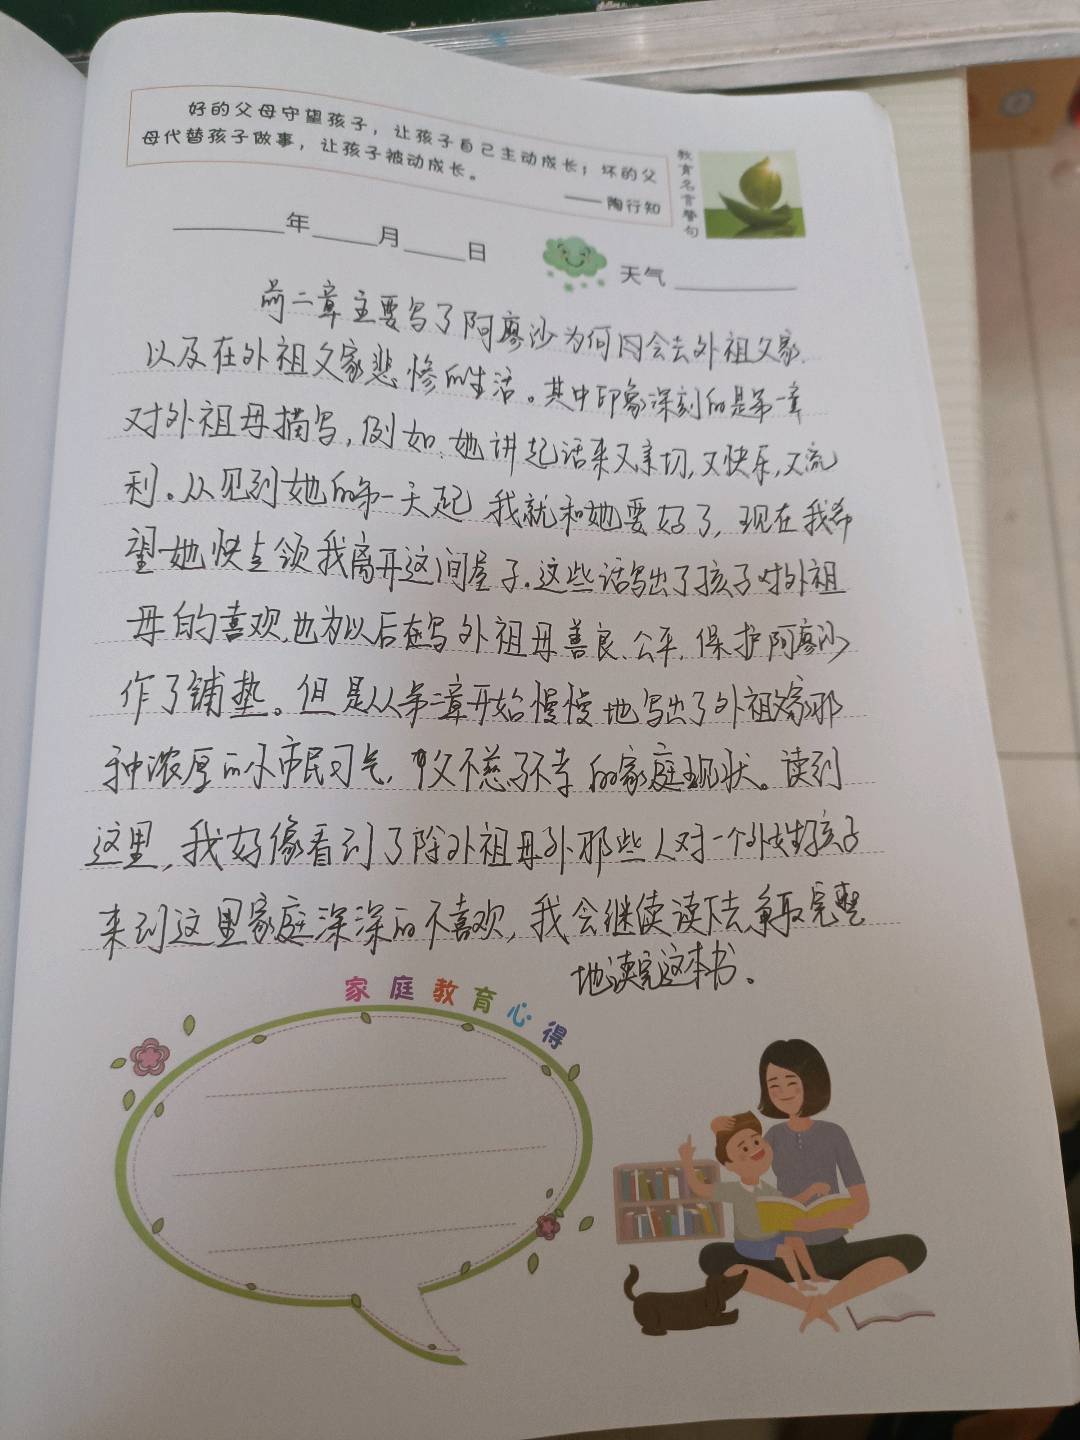 好的父母守望孩子，让孩子自己主动成长；坏的父
母代替孩子做事，让孩子被动成长。
——陶行知
教育名言警句
年 月 日
天气
前二章主要写了阿廖沙为何因会去外祖父家
以及在外祖父家悲惨的生活。其中印象深刻的是第一章
对外祖母描写，例如，她讲起话来又亲切，又快乐，又流
利。从见到她的第一天起 我就和她要好了，现在我希
望她快点领我离开这间屋子。这些话写出了孩子对外祖
母的喜欢，也为以后在写外祖母善良、公平，保护阿廖沙
作了铺垫。但是从第二章开始慢慢地写出了外祖父家那
种浓厚的小市民习气，父不慈子不孝的家庭现状。读到
这里，我好像看到了除外祖母外那些人对一个外姓孩子
来到这里家庭深深的不喜欢，我会继续读下去，争取完整
地读完这本书。
家庭教育心得